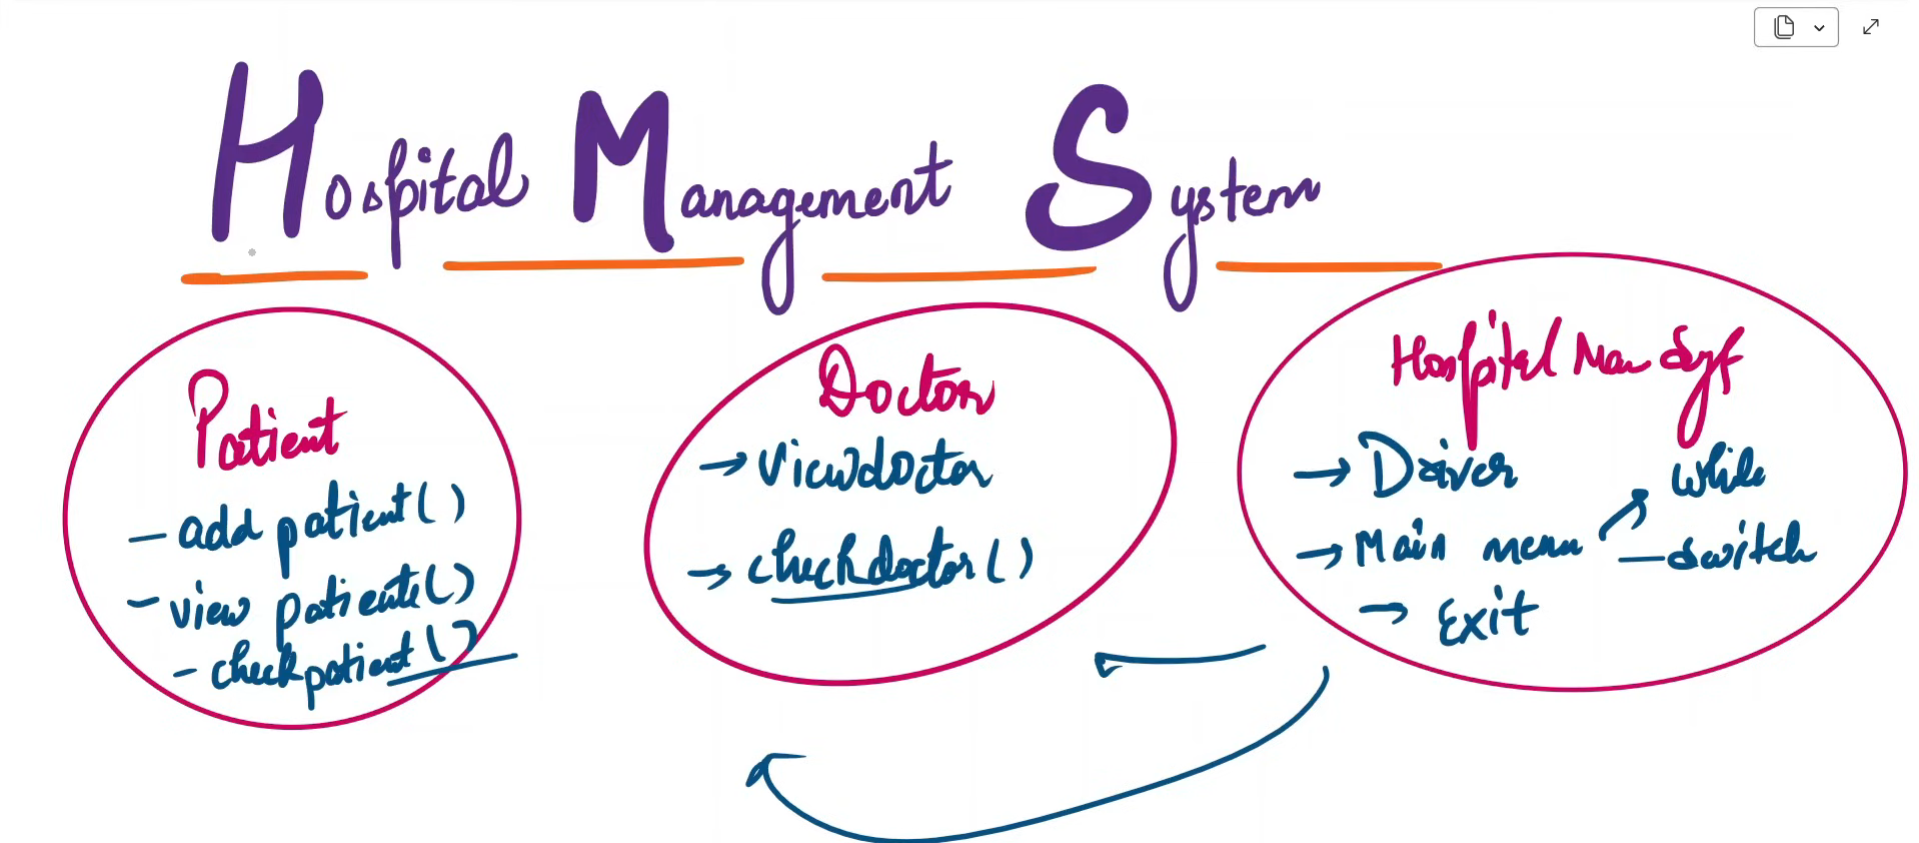 Hospital Management System
Patient
- add patient()
- view patients()
- checkpatient()
Doctor
→ Viewdoctor
→ checkdoctor()
Hospital Man Syst
→ Driver
→ Main menu
while
- switch
→ Exit